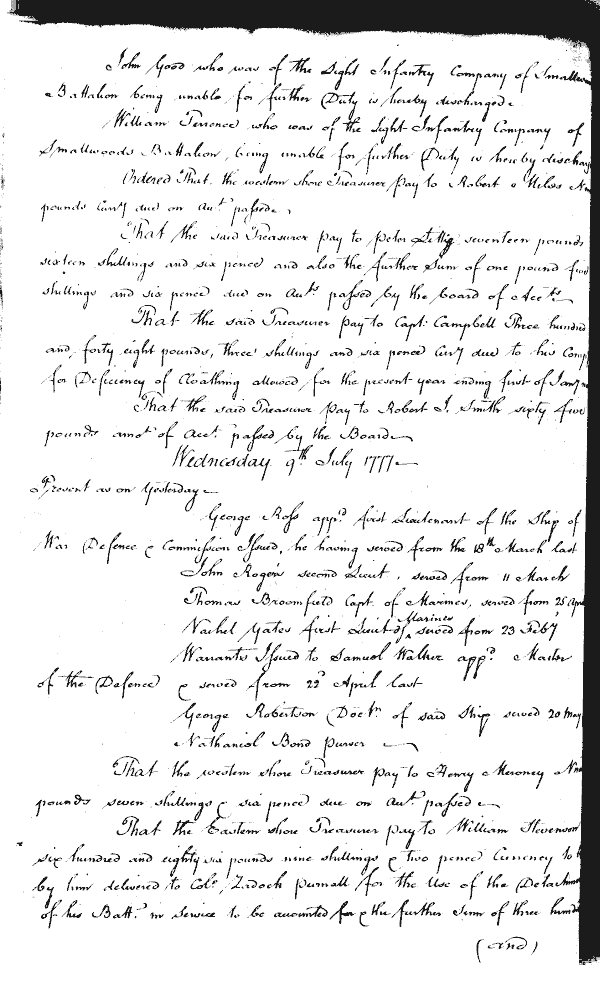 John Good who was of the Light Infantry Company of Smallwoo
Battalion being unable for further Duty is hereby discharged.
William Terrence who was of the Light Infantry Company of
Smallwoods Battalion, being unable for further Duty is hereby discharg
Ordered That the western shore Treasurer Pay to Robert
pounds Curry due on Acct. passed.
That the said Treasurer pay to Peter seventeen pounds
sixteen shillings and six pence and also the further Sum of one pound five
shillings and six pence due on Accts. passed by the board of Accts.
That the said Treasurer Pay to Capt. Campbell Three hundred
and forty eight pounds, three shillings and six pence Curry due to his Comp
for Deficiency of Cloathing allowed for the present year ending first of Jany
That the said Treasurer Pay to Robert J. Smith sixty five
pounds amot. of Acct. passed by the Board
Wednesday 9th July 1777
Present as on Yesterday
George Ross appd. first Lieutenant of the Ship of
War Defence & Commission Issued, he having served from the 18th March last
John Rogers second Lieut. served from 11 March
Thomas Broomfield Capt. of Marines, served from 25 Apri
Vachel Yates first Lieut of Marines served from 23 Feby
Warrants Issued to Samuel Walker appd. Master
of the Defence & served from 22d April last
George Robertson Doctr. of said Ship served 20 May
Nathaniel Bond purser
That the western shore Treasurer pay to Henry Meroney
pounds seven shillings & six pence due on Acct. passed
That the Eastern shore Treasurer pay to William Stevenson
six hundred and eighty six pounds nine shillings & two pence Currency to
by him delivered to Colo. Zadock Purnall for the Use of the Detachm
of his Battn. in Service to be accounted for & the further Sum of three hund
(and)